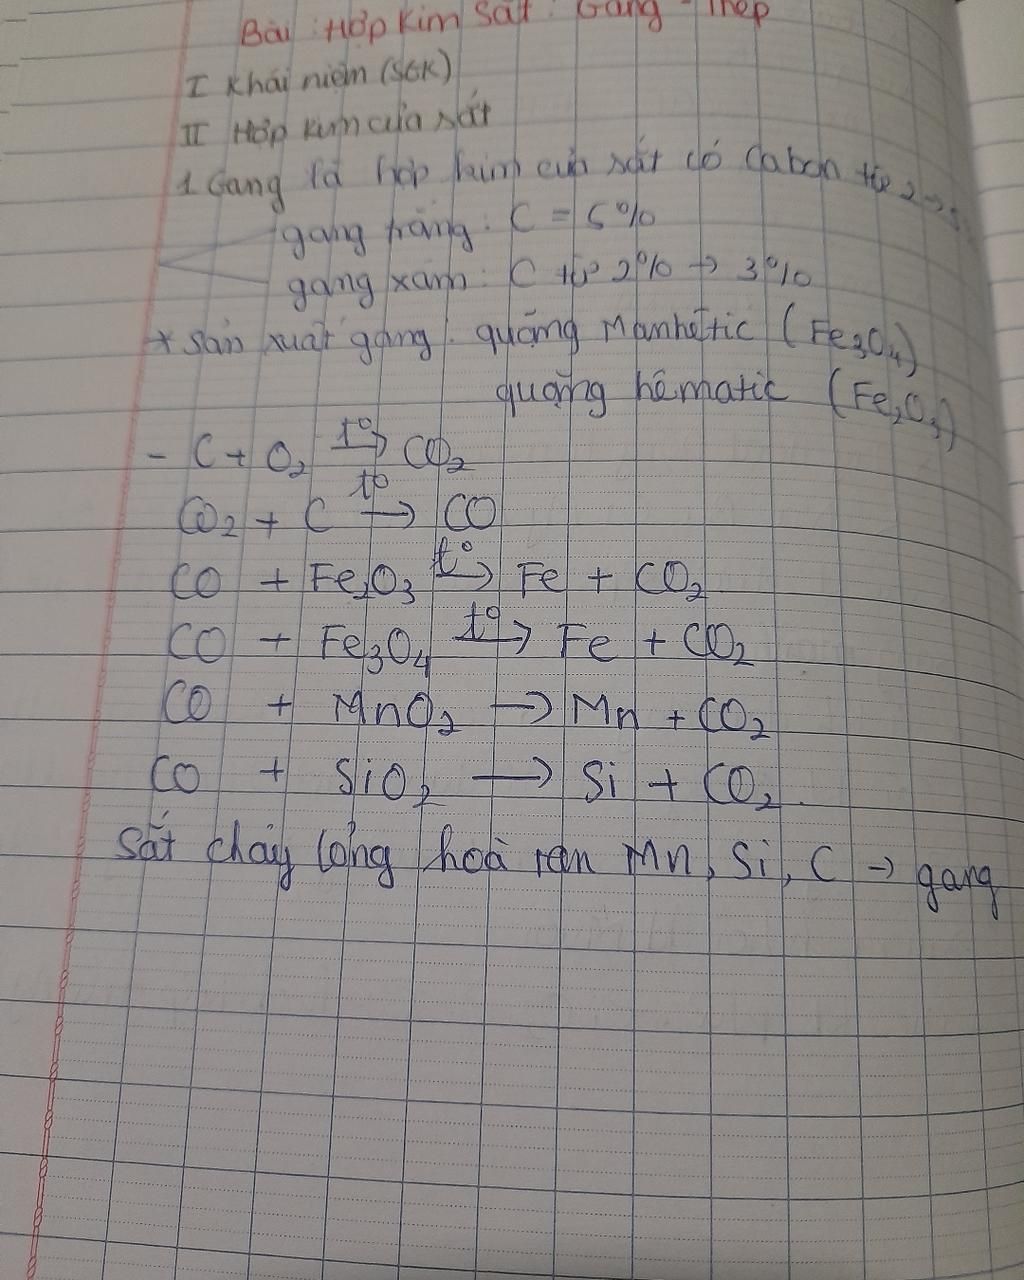 Bài: Hợp kim sắt: Gang - Thép
I Khái niệm (SGK)
II Hợp kim của sắt
1 Gang là hợp kim của sắt có Cabon từ 2 → 5
gang trắng: C = 5%
gang xám: C từ 2% → 3%
* Sản xuất gang: quặng Manhêtic (Fe₃O₄)
quặng hêmatic (Fe₂O₃)
- C + O₂ t° → CO₂
CO₂ + C t° → CO
CO + Fe₂O₃ t° → Fe + CO₂
CO + Fe₃O₄ t° → Fe + CO₂
CO + MnO₂ → Mn + CO₂
CO + SiO₂ → Si + CO₂.
Sắt chảy lỏng hoà tan Mn, Si, C → gang